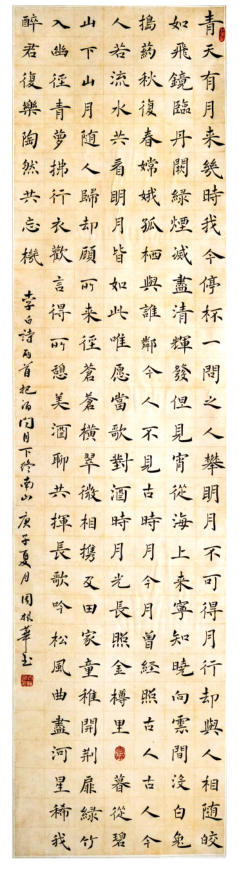 青天有月来幾時我今停杯一問之人攀明月不可得月行却與人相随皎
如飛鏡臨丹闕緑煙滅盡清輝發但見宵從海上来寧知曉向雲間没白兔
搗药秋復春嫦娥孤栖與誰鄰今人不見古時月今月曾經照古人古人今
人若流水共看明月皆如此唯愿當歌對酒時月光長照金樽里 暮從碧
山下山月随人歸却顧所来徑蒼蒼横翠微相携及田家童稚開荆扉緑竹
入幽徑青萝拂行衣歡言得所憩美酒聊共揮長歌吟松風曲盡河星稀我
醉君復樂陶然共忘機
李白詩两首把酒問月下终南山 庚子夏月 周振華书